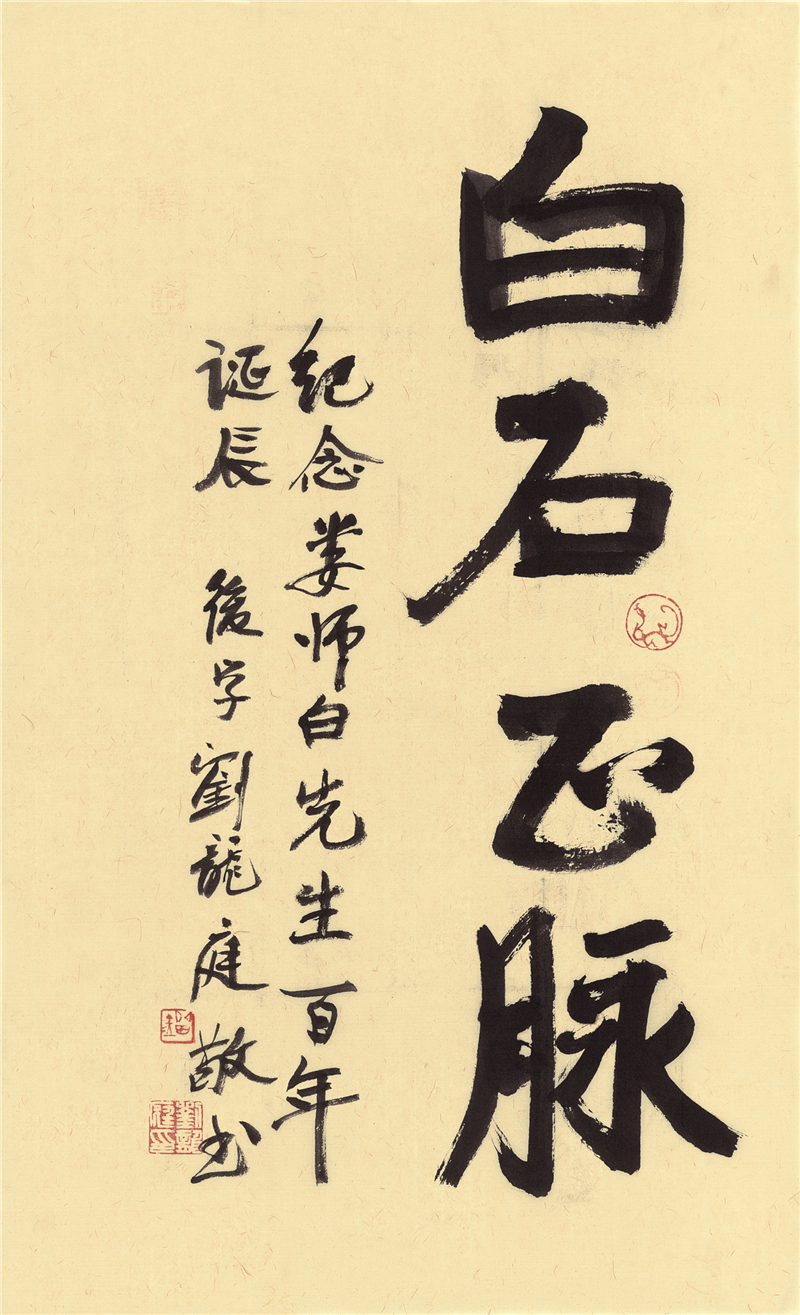 白石正脉
纪念娄师白先生百年
诞辰 後学劉龍庭敬书